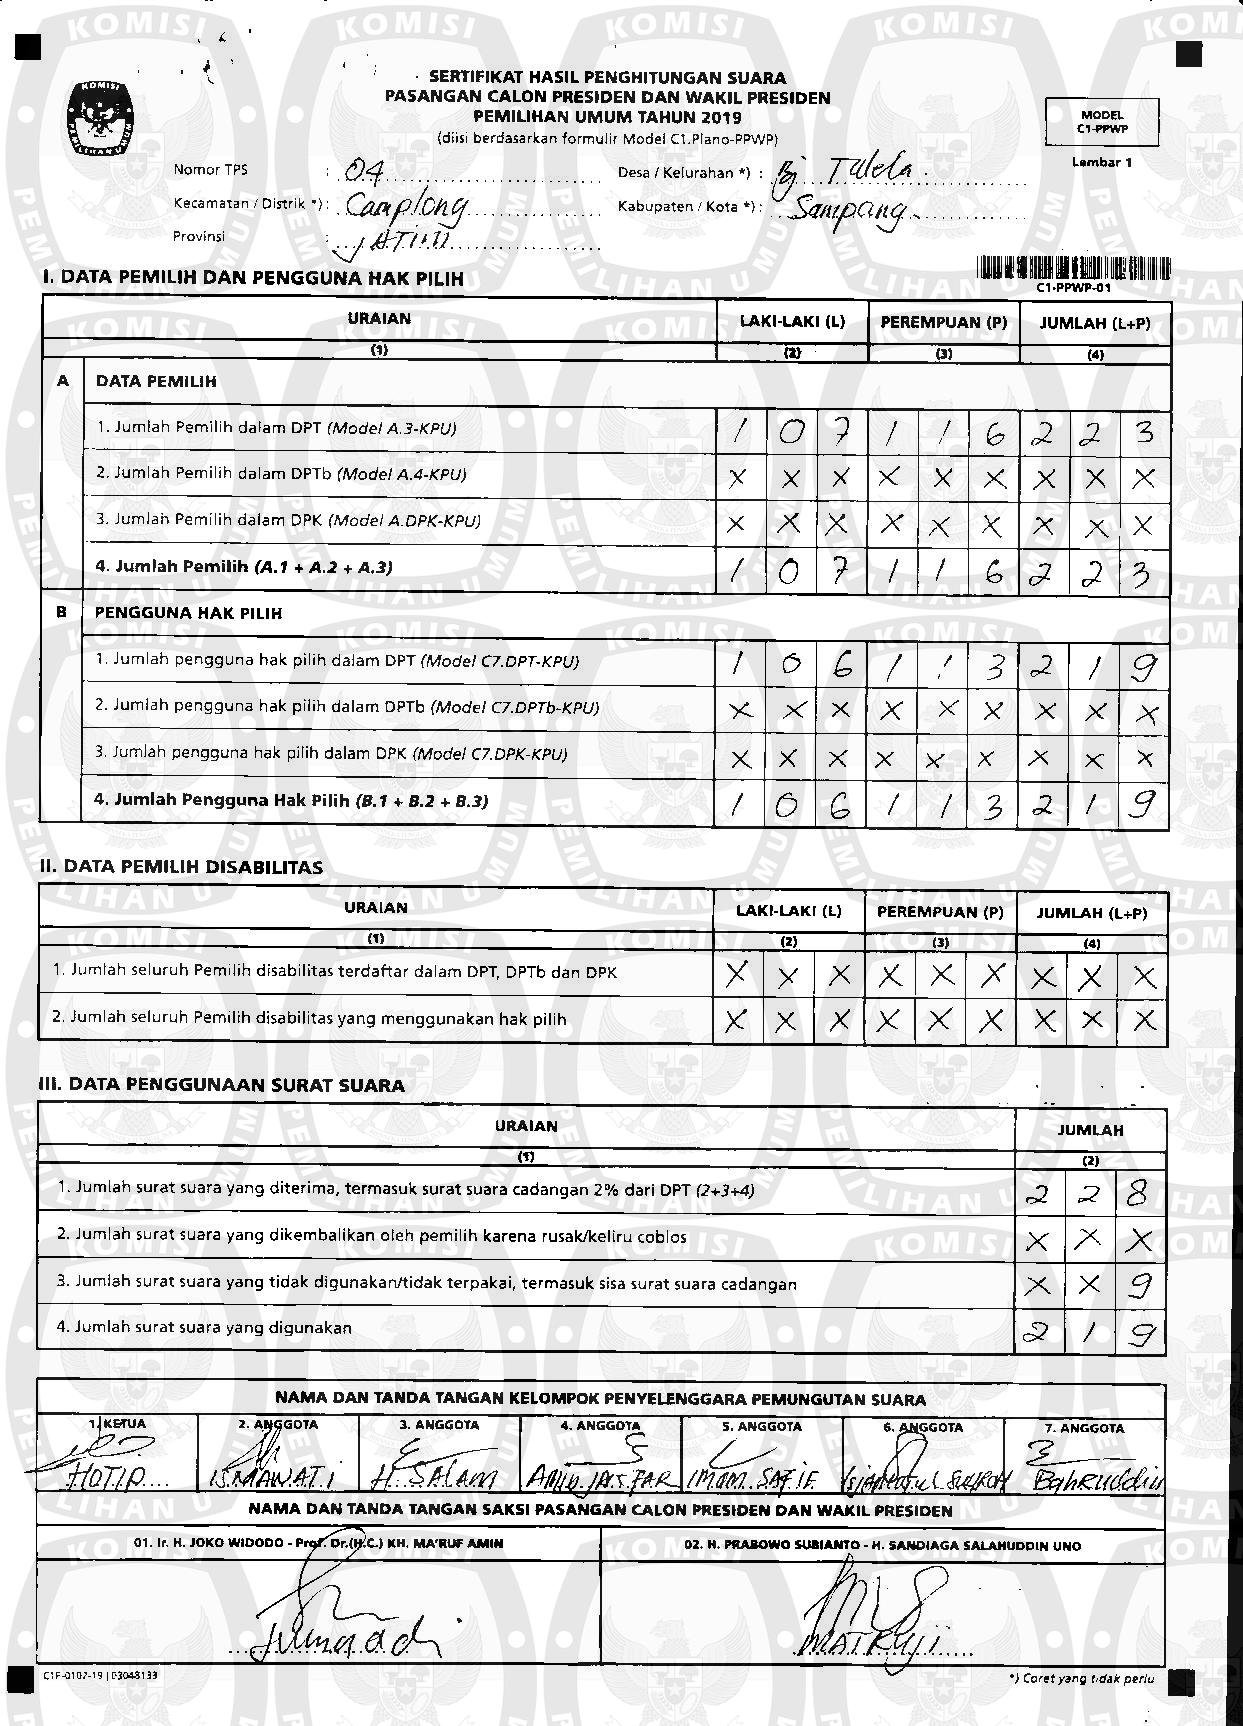 SERTIFIKAT HASIL PENGHITUNGAN SUARA
PASANGAN CALON PRESIDEN DAN WAKIL PRESIDEN
PEMILIHAN UMUM TAHUN 2019
(diisi berdasarkan formulir Model C1.Plano-PPWP)
MODEL
C1-PPWP
Lembar 1
KOMISI
PEMILIHAN UMUM
Nomor TPS : 04 Desa / Kelurahan *) : Bj Talela
Kecamatan / Distrik *) : Camplong Kabupaten / Kota *) : Sampang
Provinsi : JATIM
C1-PPWP-01
I. DATA PEMILIH DAN PENGGUNA HAK PILIH
URAIAN LAKI-LAKI (L) PEREMPUAN (P) JUMLAH (L+P)
(1) (2) (3) (4)
A DATA PEMILIH
1. Jumlah Pemilih dalam DPT (Model A.3-KPU) 1 0 7 1 1 6 2 2 3
2. Jumlah Pemilih dalam DPTb (Model A.4-KPU) X X X X X X X X X
3. Jumlah Pemilih dalam DPK (Model A.DPK-KPU) X X X X X X X X X
4. Jumlah Pemilih (A.1 + A.2 + A.3) 1 0 7 1 1 6 2 2 3
B PENGGUNA HAK PILIH
1. Jumlah pengguna hak pilih dalam DPT (Model C7.DPT-KPU) 1 0 6 1 1 3 2 1 9
2. Jumlah pengguna hak pilih dalam DPTb (Model C7.DPTb-KPU) X X X X X X X X X
3. Jumlah pengguna hak pilih dalam DPK (Model C7.DPK-KPU) X X X X X X X X X
4. Jumlah Pengguna Hak Pilih (B.1 + B.2 + B.3) 1 0 6 1 1 3 2 1 9
II. DATA PEMILIH DISABILITAS
URAIAN LAKI-LAKI (L) PEREMPUAN (P) JUMLAH (L+P)
(1) (2) (3) (4)
1. Jumlah seluruh Pemilih disabilitas terdaftar dalam DPT, DPTb dan DPK X X X X X X X X X
2. Jumlah seluruh Pemilih disabilitas yang menggunakan hak pilih X X X X X X X X X
III. DATA PENGGUNAAN SURAT SUARA
URAIAN JUMLAH
(1) (2)
1. Jumlah surat suara yang diterima, termasuk surat suara cadangan 2% dari DPT (2+3+4) 2 2 8
2. Jumlah surat suara yang dikembalikan oleh pemilih karena rusak/keliru coblos X X X
3. Jumlah surat suara yang tidak digunakan/tidak terpakai, termasuk sisa surat suara cadangan X X 9
4. Jumlah surat suara yang digunakan 2 1 9
NAMA DAN TANDA TANGAN KELOMPOK PENYELENGGARA PEMUNGUTAN SUARA
1. KETUA 2. ANGGOTA 3. ANGGOTA 4. ANGGOTA 5. ANGGOTA 6. ANGGOTA 7. ANGGOTA
HOTIP ISMAWATI H. SALAM AMIN JA'SFAR IMAM SAFIE Bahruddin
NAMA DAN TANDA TANGAN SAKSI PASANGAN CALON PRESIDEN DAN WAKIL PRESIDEN
01. Ir. H. JOKO WIDODO - Prof. Dr.(H.C.) KH. MA'RUF AMIN 02. H. PRABOWO SUBIANTO - H. SANDIAGA SALAHUDDIN UNO
Junaadi MATRUJI
C1F-0107-19 | 03048133 *) Coret yang tidak perlu